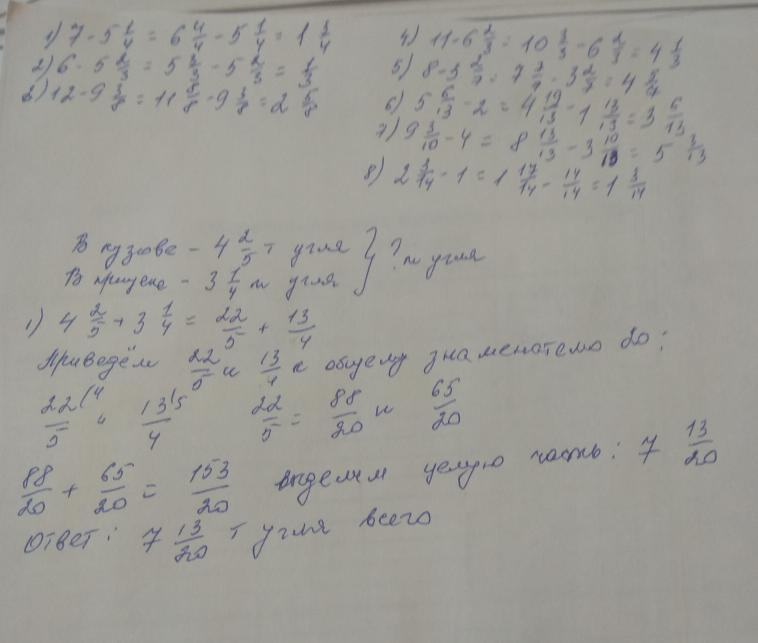 1) 7 - 5 1/4 = 6 4/4 - 5 1/4 = 1 3/4
2) 6 - 5 2/3 = 5 3/3 - 5 2/3 = 1/3
3) 12 - 9 3/8 = 11 8/8 - 9 3/8 = 2 5/8
4) 11 - 6 2/3 = 10 3/3 - 6 2/3 = 4 1/3
5) 8 - 3 2/7 = 7 7/7 - 3 2/7 = 4 5/7
6) 5 6/13 - 2 = 4 19/13 - 1 13/13 = 3 6/13
7) 9 3/10 - 4 = 8 13/13 - 3 10/10 = 5 3/13
8) 2 3/14 - 1 = 1 17/14 - 14/14 = 1 3/14
В кузове - 4 2/5 т угля } ? т угля
В прицепе - 3 1/4 т угля
1) 4 2/5 + 3 1/4 = 22/5 + 13/4
Приведём 22/5 и 13/4 к общему знаменателю 20:
22/5 (4 и 13/4 (5 22/5 = 88/20 и 65/20
88/20 + 65/20 = 153/20 выделим целую часть: 7 13/20
Ответ: 7 13/20 т угля всего